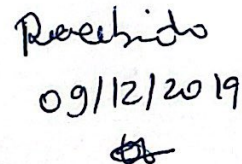 Recebido
09/12/2019